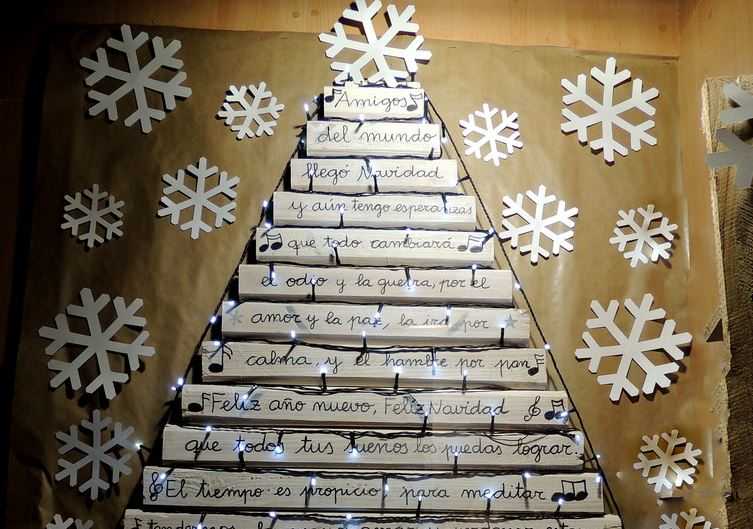 Amigos
del mundo
llegó Navidad
y aún tengo esperanzas
que todo cambiará
el odio y la guerra, por el
amor y la paz, la ira por
calma, y el hambre por pan
Feliz año nuevo, Feliz Navidad
que todos tus sueños los puedas lograr.
El tiempo es propicio, para meditar